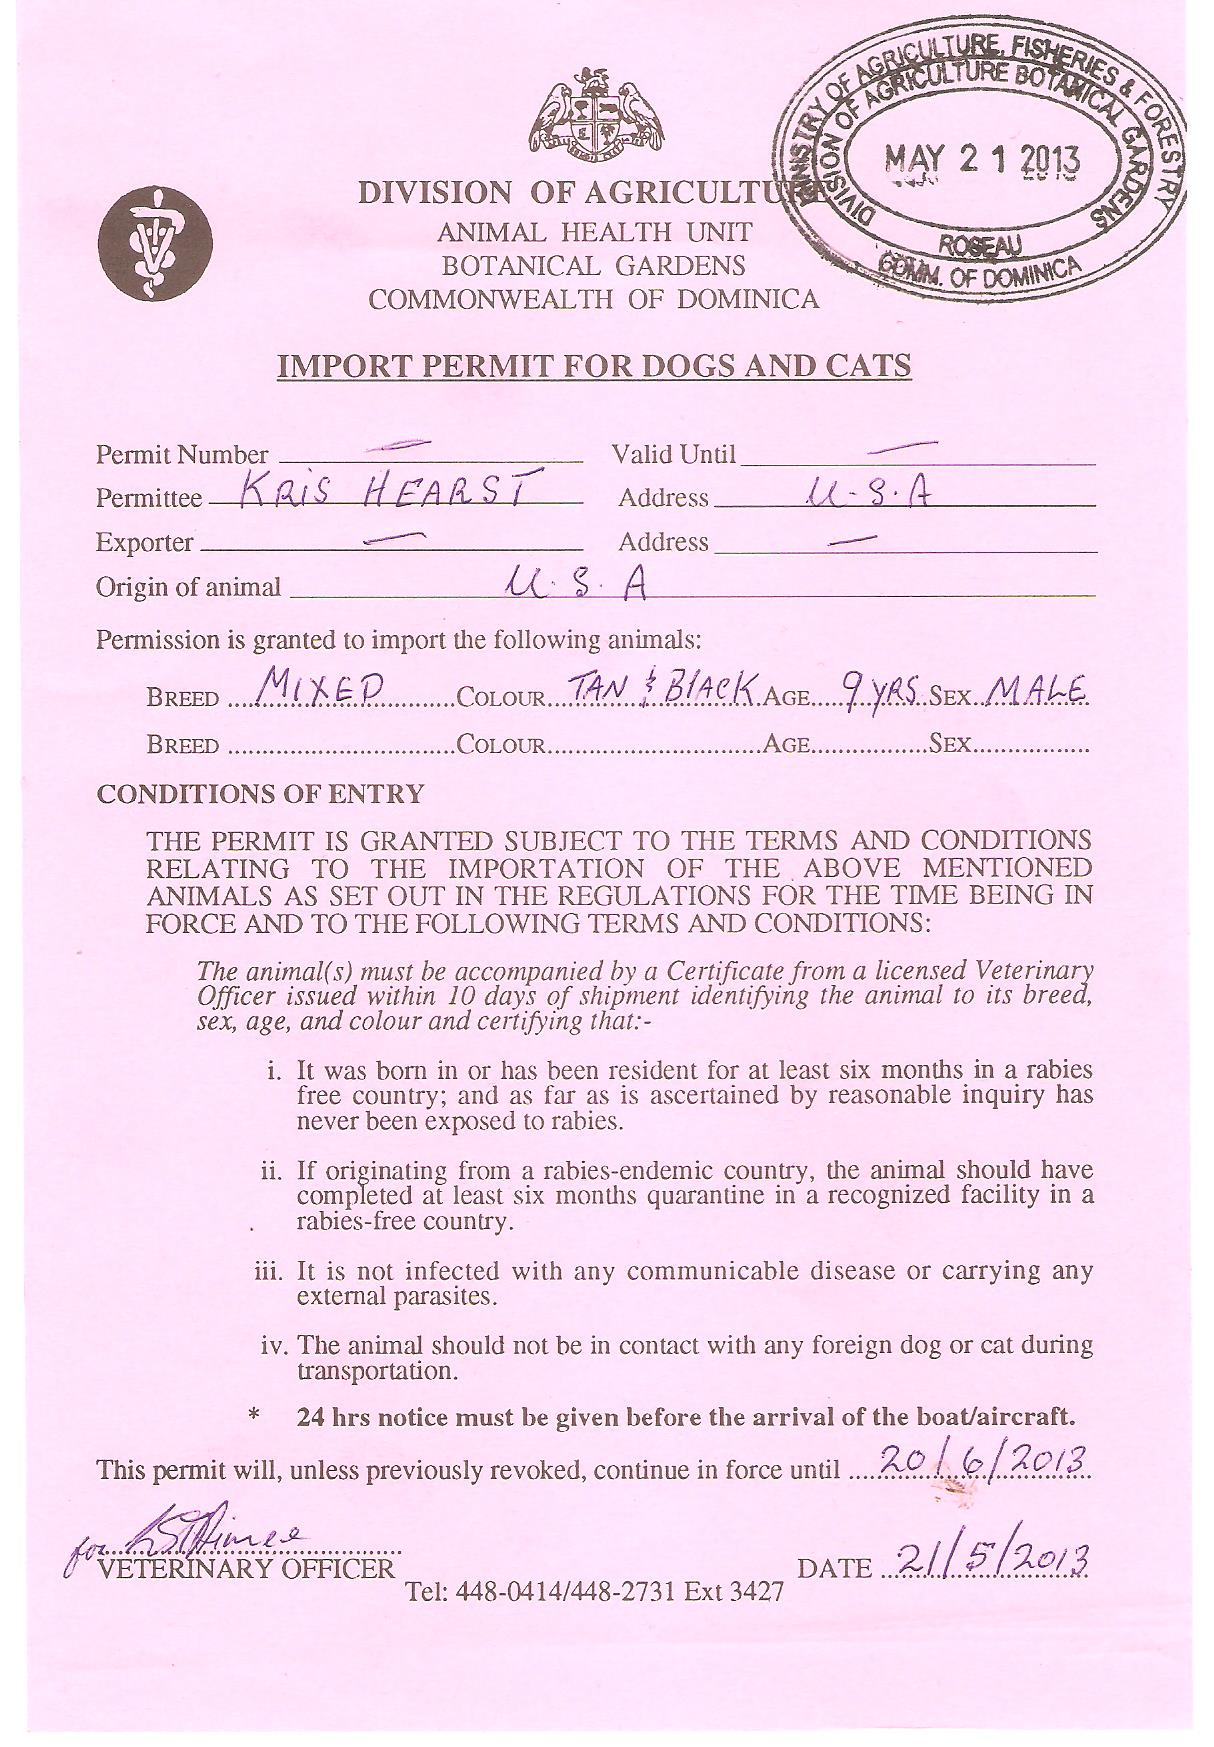 MINISTRY OF AGRICULTURE, FISHERIES & FORESTRY
DIVISION OF AGRICULTURE BOTANICAL GARDENS
MAY 21 2013
ROSEAU
COMM. OF DOMINICA
DIVISION OF AGRICULTURE
ANIMAL HEALTH UNIT
BOTANICAL GARDENS
COMMONWEALTH OF DOMINICA
IMPORT PERMIT FOR DOGS AND CATS
Permit Number — Valid Until —
Permittee KRIS HEARST Address U.S.A
Exporter — Address —
Origin of animal U.S.A
Permission is granted to import the following animals:
BREED MIXED COLOUR TAN & BLACK AGE 9 YRS SEX MALE
BREED COLOUR AGE SEX
CONDITIONS OF ENTRY
THE PERMIT IS GRANTED SUBJECT TO THE TERMS AND CONDITIONS
RELATING TO THE IMPORTATION OF THE ABOVE MENTIONED
ANIMALS AS SET OUT IN THE REGULATIONS FOR THE TIME BEING IN
FORCE AND TO THE FOLLOWING TERMS AND CONDITIONS:
The animal(s) must be accompanied by a Certificate from a licensed Veterinary
Officer issued within 10 days of shipment identifying the animal to its breed,
sex, age, and colour and certifying that:-
i. It was born in or has been resident for at least six months in a rabies
free country; and as far as is ascertained by reasonable inquiry has
never been exposed to rabies.
ii. If originating from a rabies-endemic country, the animal should have
completed at least six months quarantine in a recognized facility in a
rabies-free country.
iii. It is not infected with any communicable disease or carrying any
external parasites.
iv. The animal should not be in contact with any foreign dog or cat during
transportation.
* 24 hrs notice must be given before the arrival of the boat/aircraft.
This permit will, unless previously revoked, continue in force until 20/6/2013
for
VETERINARY OFFICER DATE 21/5/2013
Tel: 448-0414/448-2731 Ext 3427